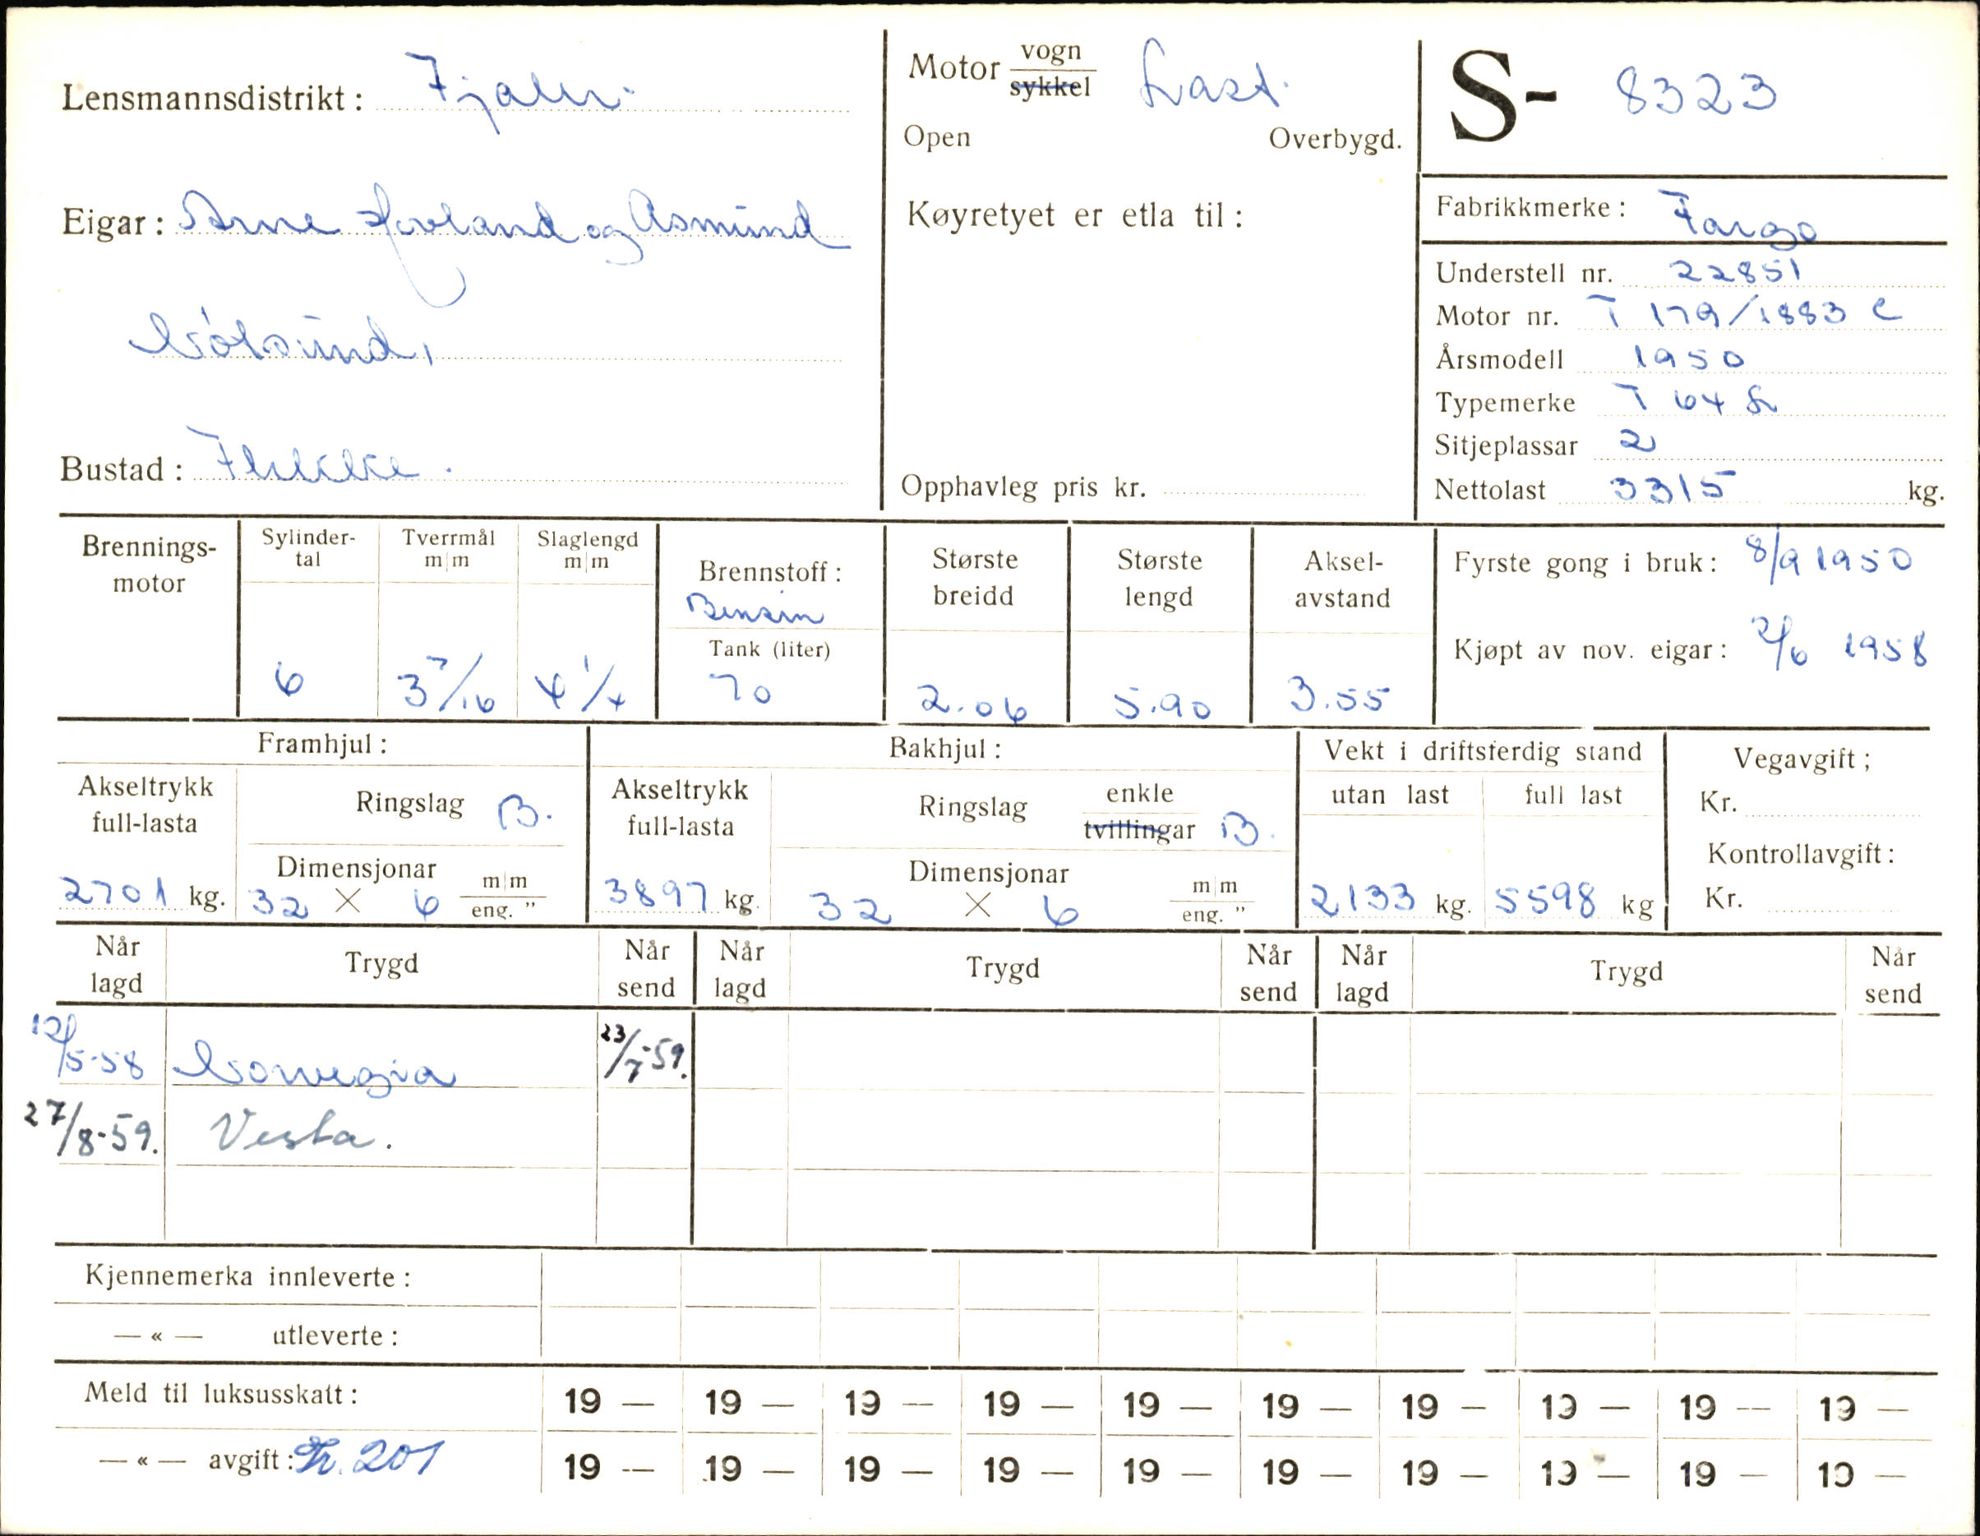 Lensmannsdistrikt: Fjaler.
Eigar: Arne Hovland og Asmund
Nótsund,
Bustad: Flekke.
Motor vogn sykkel Last.
Open Overbygd.
Køyretyet er etla til:
Opphavleg pris kr.
S- 8323
Fabrikkmerke: Fargo
Understell nr. 22851
Motor nr. T 179/1883 C
Årsmodell 1950
Typemerke T 64 L
Sitjeplassar 2
Nettolast 3315 kg.
Brennings-motor
Sylinder-tal 6
Tverrmål m|m 3 7/16
Slaglengd m|m 4 1/4
Brennstoff: Bensin
Tank (liter) 70
Største breidd 2.06
Største lengd 5.90
Aksel-avstand 3.55
Fyrste gong i bruk: 8/9 1950
Kjøpt av nov. eigar: 2/6 1958
Framhjul:
Akseltrykk full-lasta 2701 kg.
Ringslag B.
Dimensjonar 32 × 6 m|m eng. "
Bakhjul:
Akseltrykk full-lasta 3897 kg.
Ringslag enkle tvillingar B.
Dimensjonar 32 × 6 m|m eng. "
Vekt i driftsferdig stand
utan last 2133 kg.
full last 5598 kg
Vegavgift;
Kr.
Kontrollavgift:
Kr.
Når lagd Trygd Når send Når lagd Trygd Når send Når lagd Trygd Når send
12/5-58 Norwegia 23/7-59.
27/8-59. Vesta.
Kjennemerka innleverte:
— « — utleverte:
Meld til luksusskatt: 19 — 19 — 19 — 19 — 19 — 19 — 19 — 19 — 19 — 19 —
— « — avgift: Kr. 201 19 — 19 — 19 — 19 — 19 — 19 — 19 — 19 — 19 — 19 —